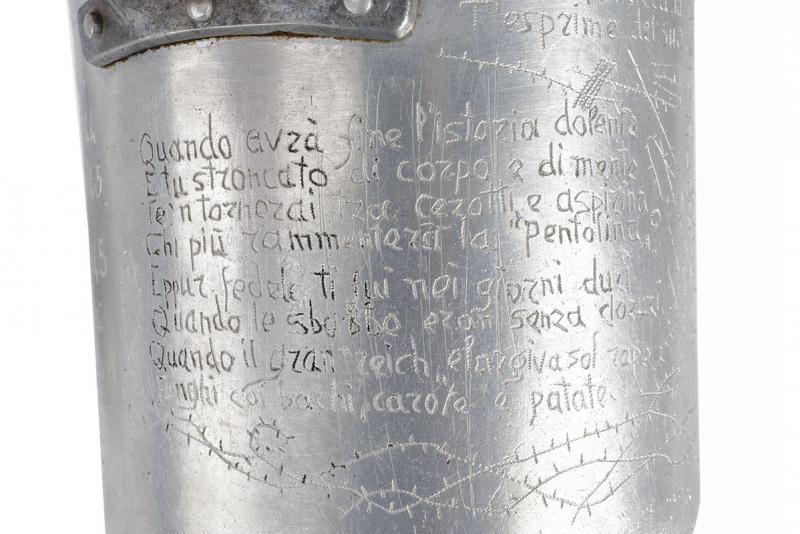 esprime dei su
Quando avrà fine l'istoria dolente
E tu stroncato di corpo e di mente
Te'n tornerai tra cerotti e aspirina
Chi più rammenterà la "pentolina"
Eppur fedele ti fui nei giorni duri
Quando le sbobbe eran senza
Quando il gran "reich" elargiva sol rape
funghi coi bachi, carote e patate
15
45